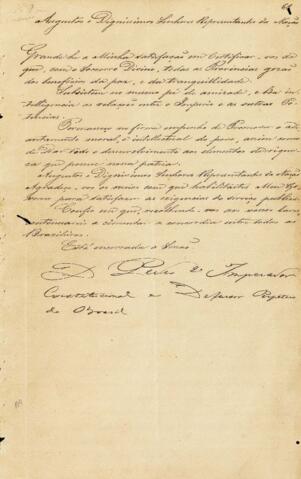 Augustos e Dignissimos Senhores Representantes da Nação
Grande he a Minha satisfação em Certificar-vos de
que, com o Soccorro Divino, todas as Provincias gozão
dos beneficios da paz, e da tranquillidade.
Subsistem no mesmo pé de amizade, e Boa in-
telligencia as relações entre o Imperio e as outras Po-
tencias.
Permaneço no firme empenho de Promover o adi-
antamento moral, e intellectual do paiz, assim como
de Dar todo o desenvolvimento aos elementos de rique-
za que possue nossa patria.
Augustos e Dignissimos Senhores Representantes da Nação
Agradeço-vos os meios com que habilitastes Meu Go-
verno para satisfazer as exigencias do serviço publico.
Confio em que, recolhendo-vos aos vossos lares
continuareis a cimentar a concordia entre todos os
Brasileiros.
Está encerrada a Sessão
D. Pedro 2º Imperador
Constitucional e Defensor Perpetuo
do Brasil